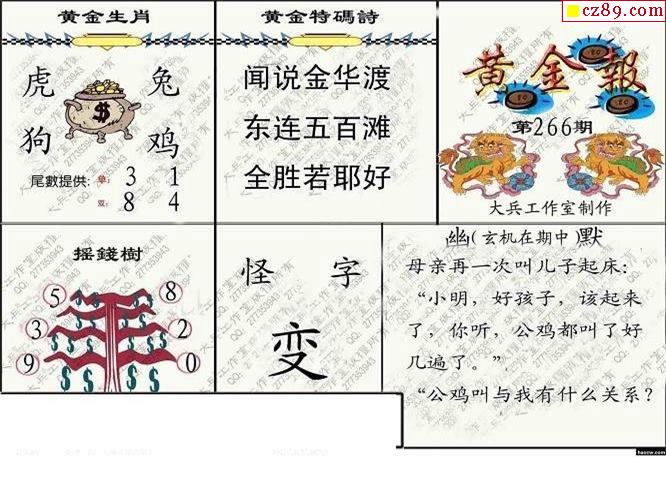 cz89.com
黄金生肖
虎 兔
狗 鸡
尾數提供: 單: 3 1
双: 8 4
黄金特碼詩
闻说金华渡
东连五百滩
全胜若耶好
黄金報
第266期
大兵工作室制作
摇錢樹
5 8
3 2
9 0
怪 字
变
幽(玄机在期中)默
母亲再一次叫儿子起床:
“小明，好孩子，该起来
了，你听，公鸡都叫了好
几遍了。”
“公鸡叫与我有什么关系?